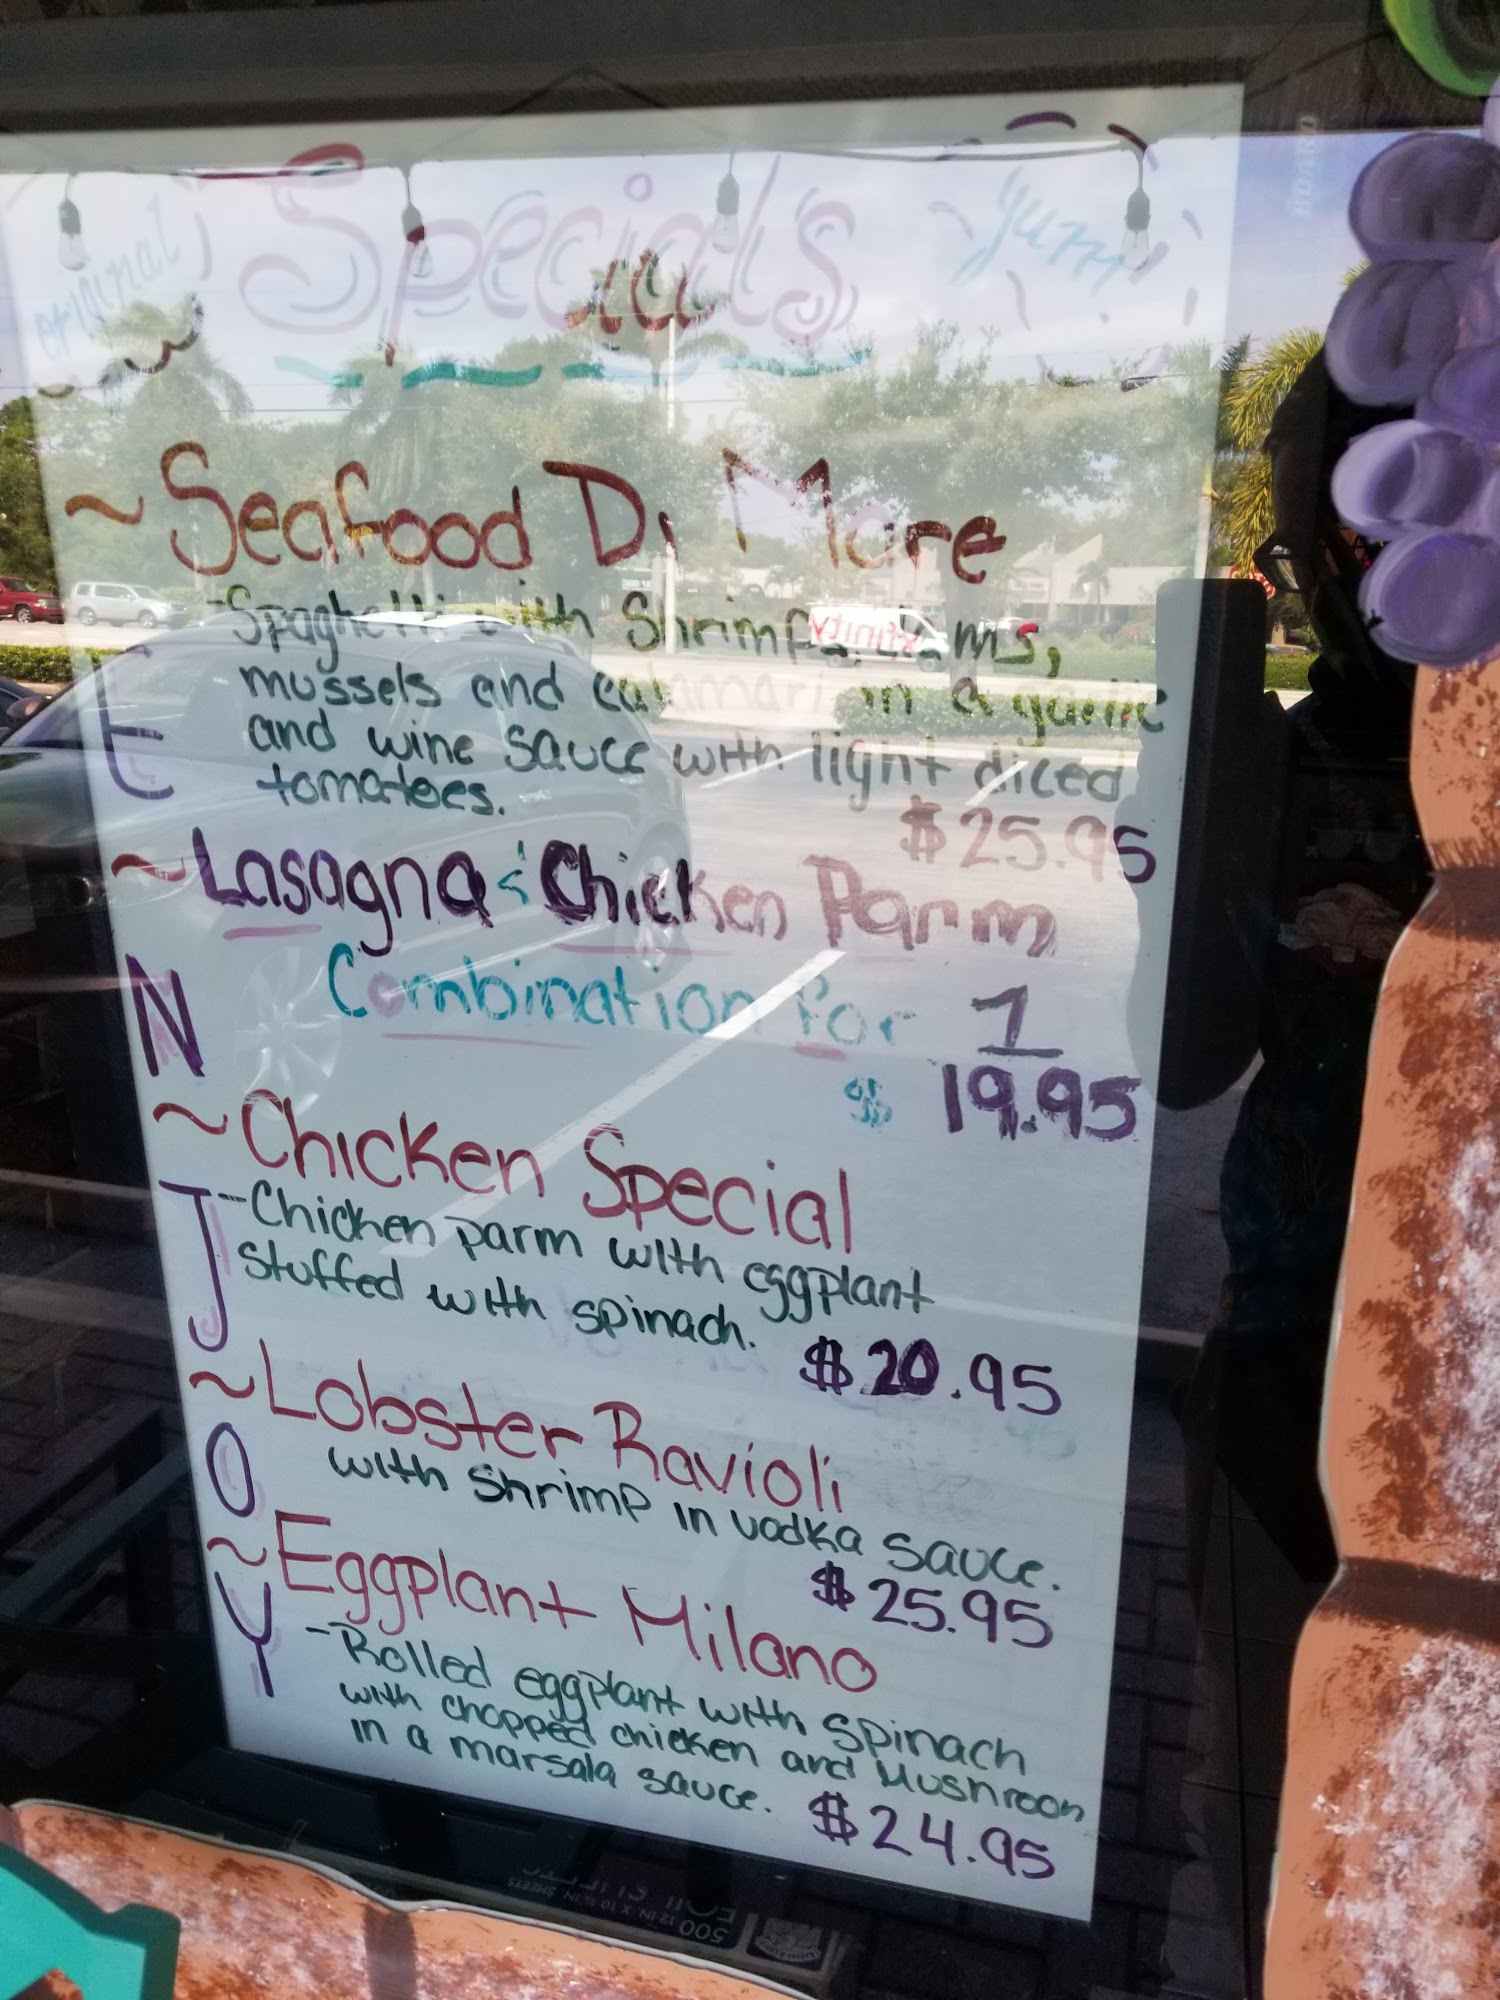 original
Specials
yum
~ Seafood Di Mare
- Spaghetti with Shrimp, clams,
mussels and calamari in a garlic
and wine sauce with light diced
tomatoes.
$25.95
~ Lasagna & Chicken Parm
Combination for 1
$ 19.95
~ Chicken Special
- Chicken parm with eggplant
Stuffed with spinach.
$20.95
~ Lobster Ravioli
with Shrimp in vodka sauce.
$25.95
~ Eggplant Milano
- Rolled eggplant with spinach
with chopped chicken and Mushroom
in a marsala sauce.
$24.95
E
N
J
O
Y
xfinity
500 12 IN X 10 3/4 IN SHEETS